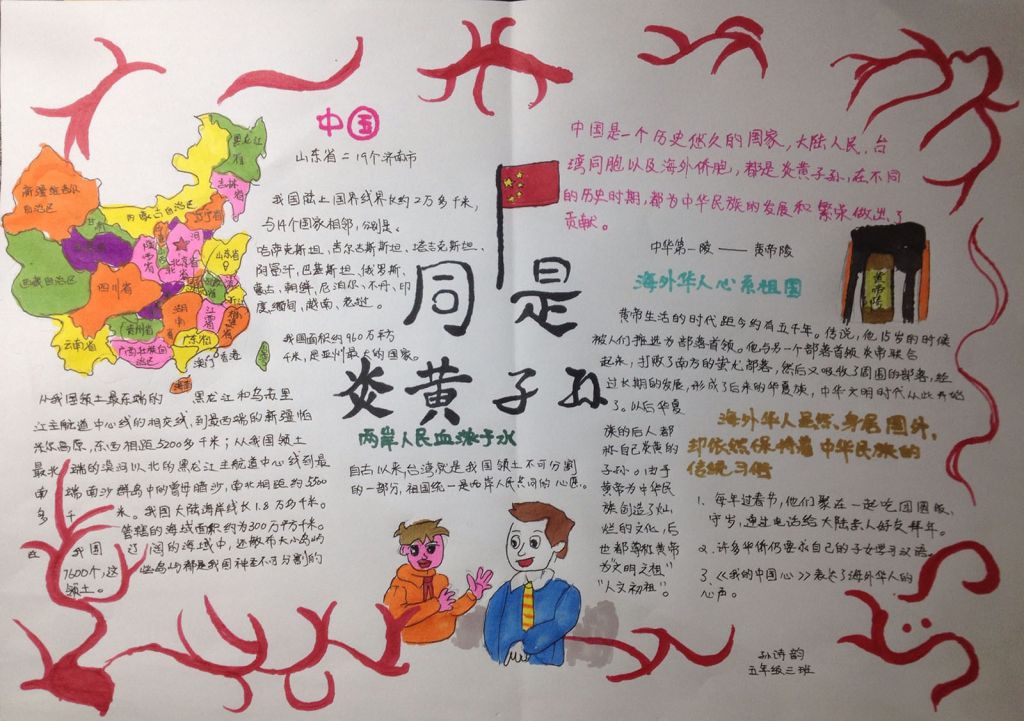 中国
山东省=19个济南市
我国陆上国界线界长约2万多千米,
与14个国家相邻,分别是、
哈萨克斯坦、吉尔吉斯斯坦、塔吉克斯坦、
阿富汗、巴基斯坦、俄罗斯、
蒙古、朝鲜、尼泊尔、不丹、印
度、缅甸、越南、老挝。
我国面积约960万平方
千米,是亚州最大的国家。
黑龙江省
吉林省
辽宁省
新疆维吾尔
自治区
内蒙古自治区
甘肃
北京
山东省
西藏自治区
四川省
湖南
江西省
贵州省
云南省
广西壮族自治区
广东省
澳门
香港
从我国领土最东端的 黑龙江和乌苏里
江主航道中心线的相交线,到最西端的新疆怕
米尔高原,东西相距5200多千米;从我国领土
最北 端的漠河以北的黑龙江主航道中心线到最
南 端南沙群岛中的曾母暗沙,南北相距约5500
多 千 米。我国大陆海岸线长1.8万多千米。
管辖的海域面积约为300万平方千米。
在 我国 辽阔的海域中,还散布大小岛屿
7600个,这 些岛屿都是我国神圣不可分割的
领土。
同是
炎黄子孙
两岸人民血浓于水
自古以来台湾就是我国领土不可分割
的一部分,祖国统一是两岸人民共同的心愿。
中国是一个历史悠久的国家,大陆人民、台
湾同胞以及海外侨胞,都是炎黄子孙,在不同
的历史时期,都为中华民族的发展和繁荣做出了
贡献。
中华第一陵——黄帝陵
黄帝陵
海外华人心系祖国
黄帝生活的时代距今约有五千年。传说,他15岁的时候
被人们推选为部落首领。他与另一个部落首领炎帝联合
起来,打败了南方的蚩尤部落,然后又吸收了周围的部落,经
过长期的发展,形成了后来的华夏族,中华文明时代从此开始
了。以后华夏
族的后人都
称自己炎黄的
子孙。由于
黄帝为中华民
族创造了灿
烂的文化,后
世都尊称黄帝
为“文明之祖”
“人文初祖”。
海外华人虽然身居国外,
却依然保持着中华民族的
传统习俗
1、每年过春节,他们聚在一起吃团圆饭、
守岁,通过电话给大陆亲人好友拜年。
2、许多华侨仍要求自己的子女学习汉语。
3、《我的中国心》表达了海外华人的
心声。
孙诗韵
五年级三班